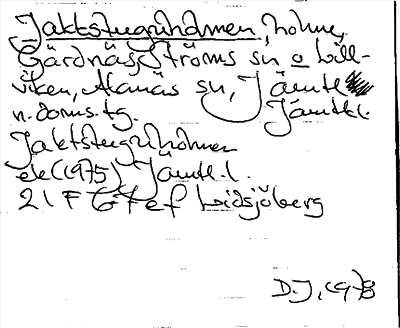 Jaktstuguholmen, holme,
Gärdnäs, Ströms sn o Lill-
viken, Alanäs sn, Jämtl
n. doms.tg. Jämtl.l.
Jaktstuguholmen
ek (1975) Jämtl.l.
21F 6-7 ef Lidsjöberg
D.J, 1978